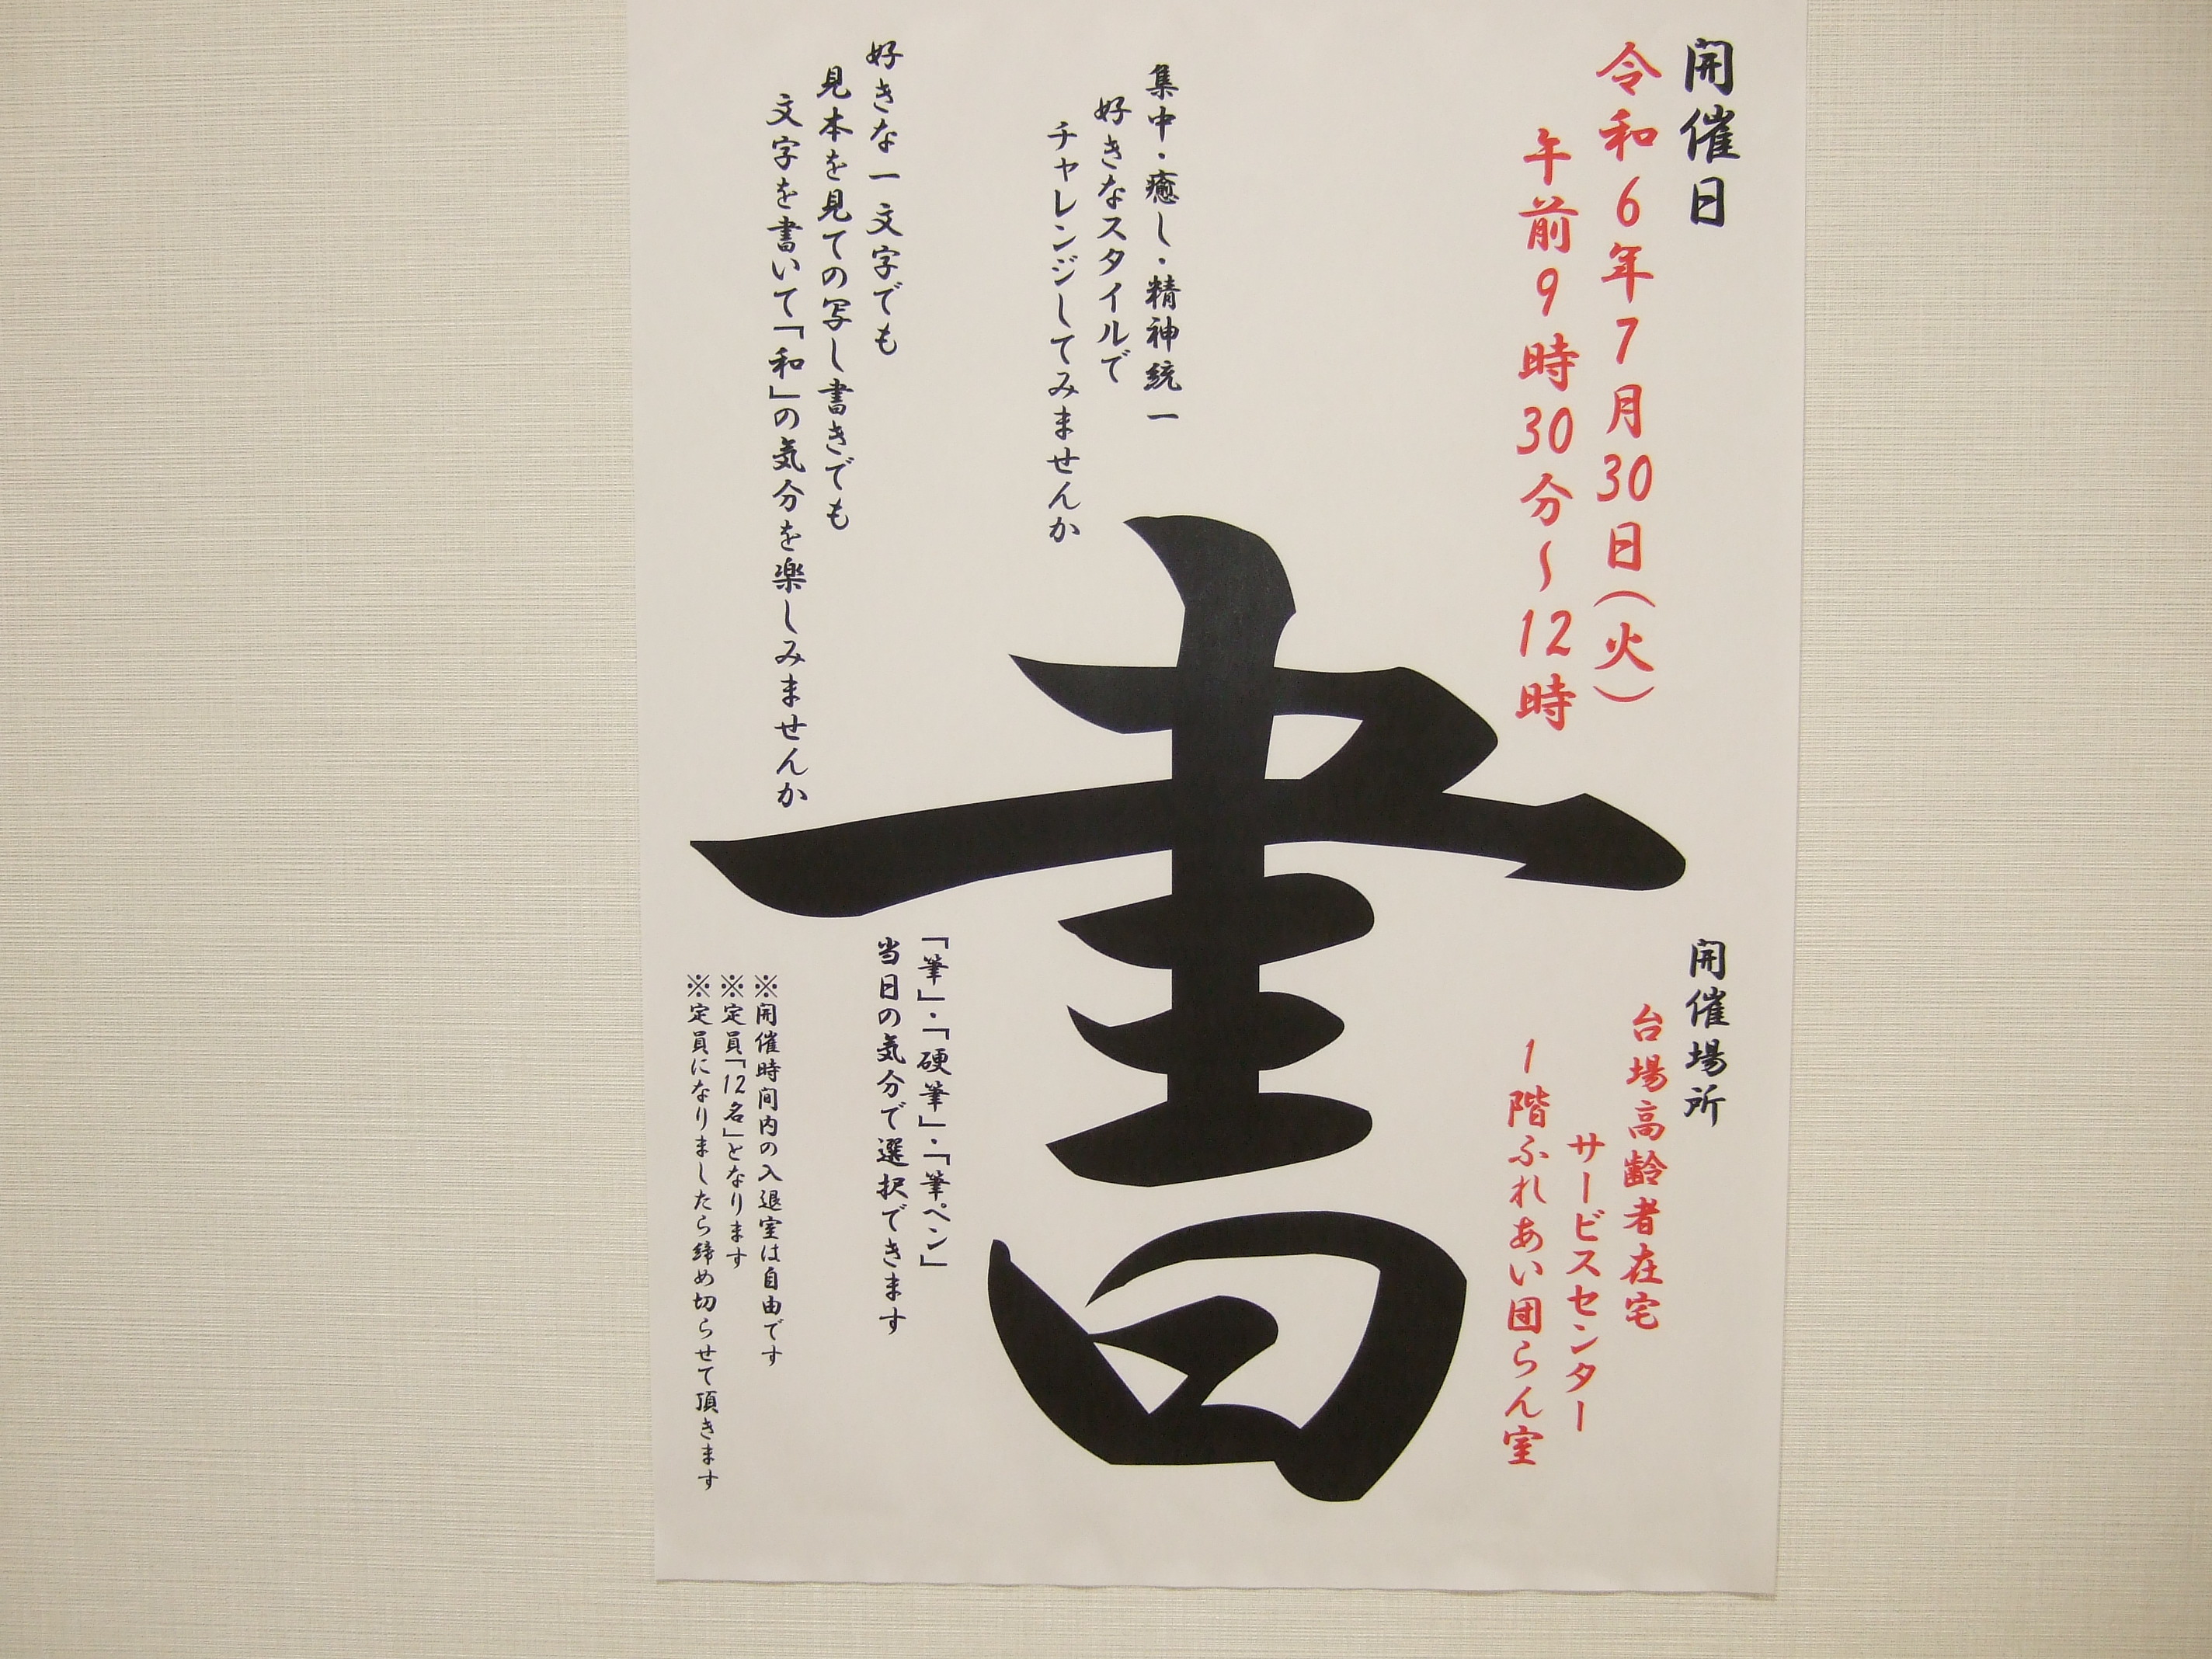 開催日
令和6年7月30日(火)
午前9時30分~12時
開催場所
台場高齢者在宅
サービスセンター
1階ふれあい団らん室
書
集中・癒し・精神統一
好きなスタイルで
チャレンジしてみませんか
好きな一文字でも
見本を見ての写し書きでも
文字を書いて「和」の気分を楽しみませんか
「筆」・「硬筆」・「筆ペン」
当日の気分で選択できます
※開催時間内の入退室は自由です
※定員「12名」となります
※定員になりましたら締め切らせて頂きます